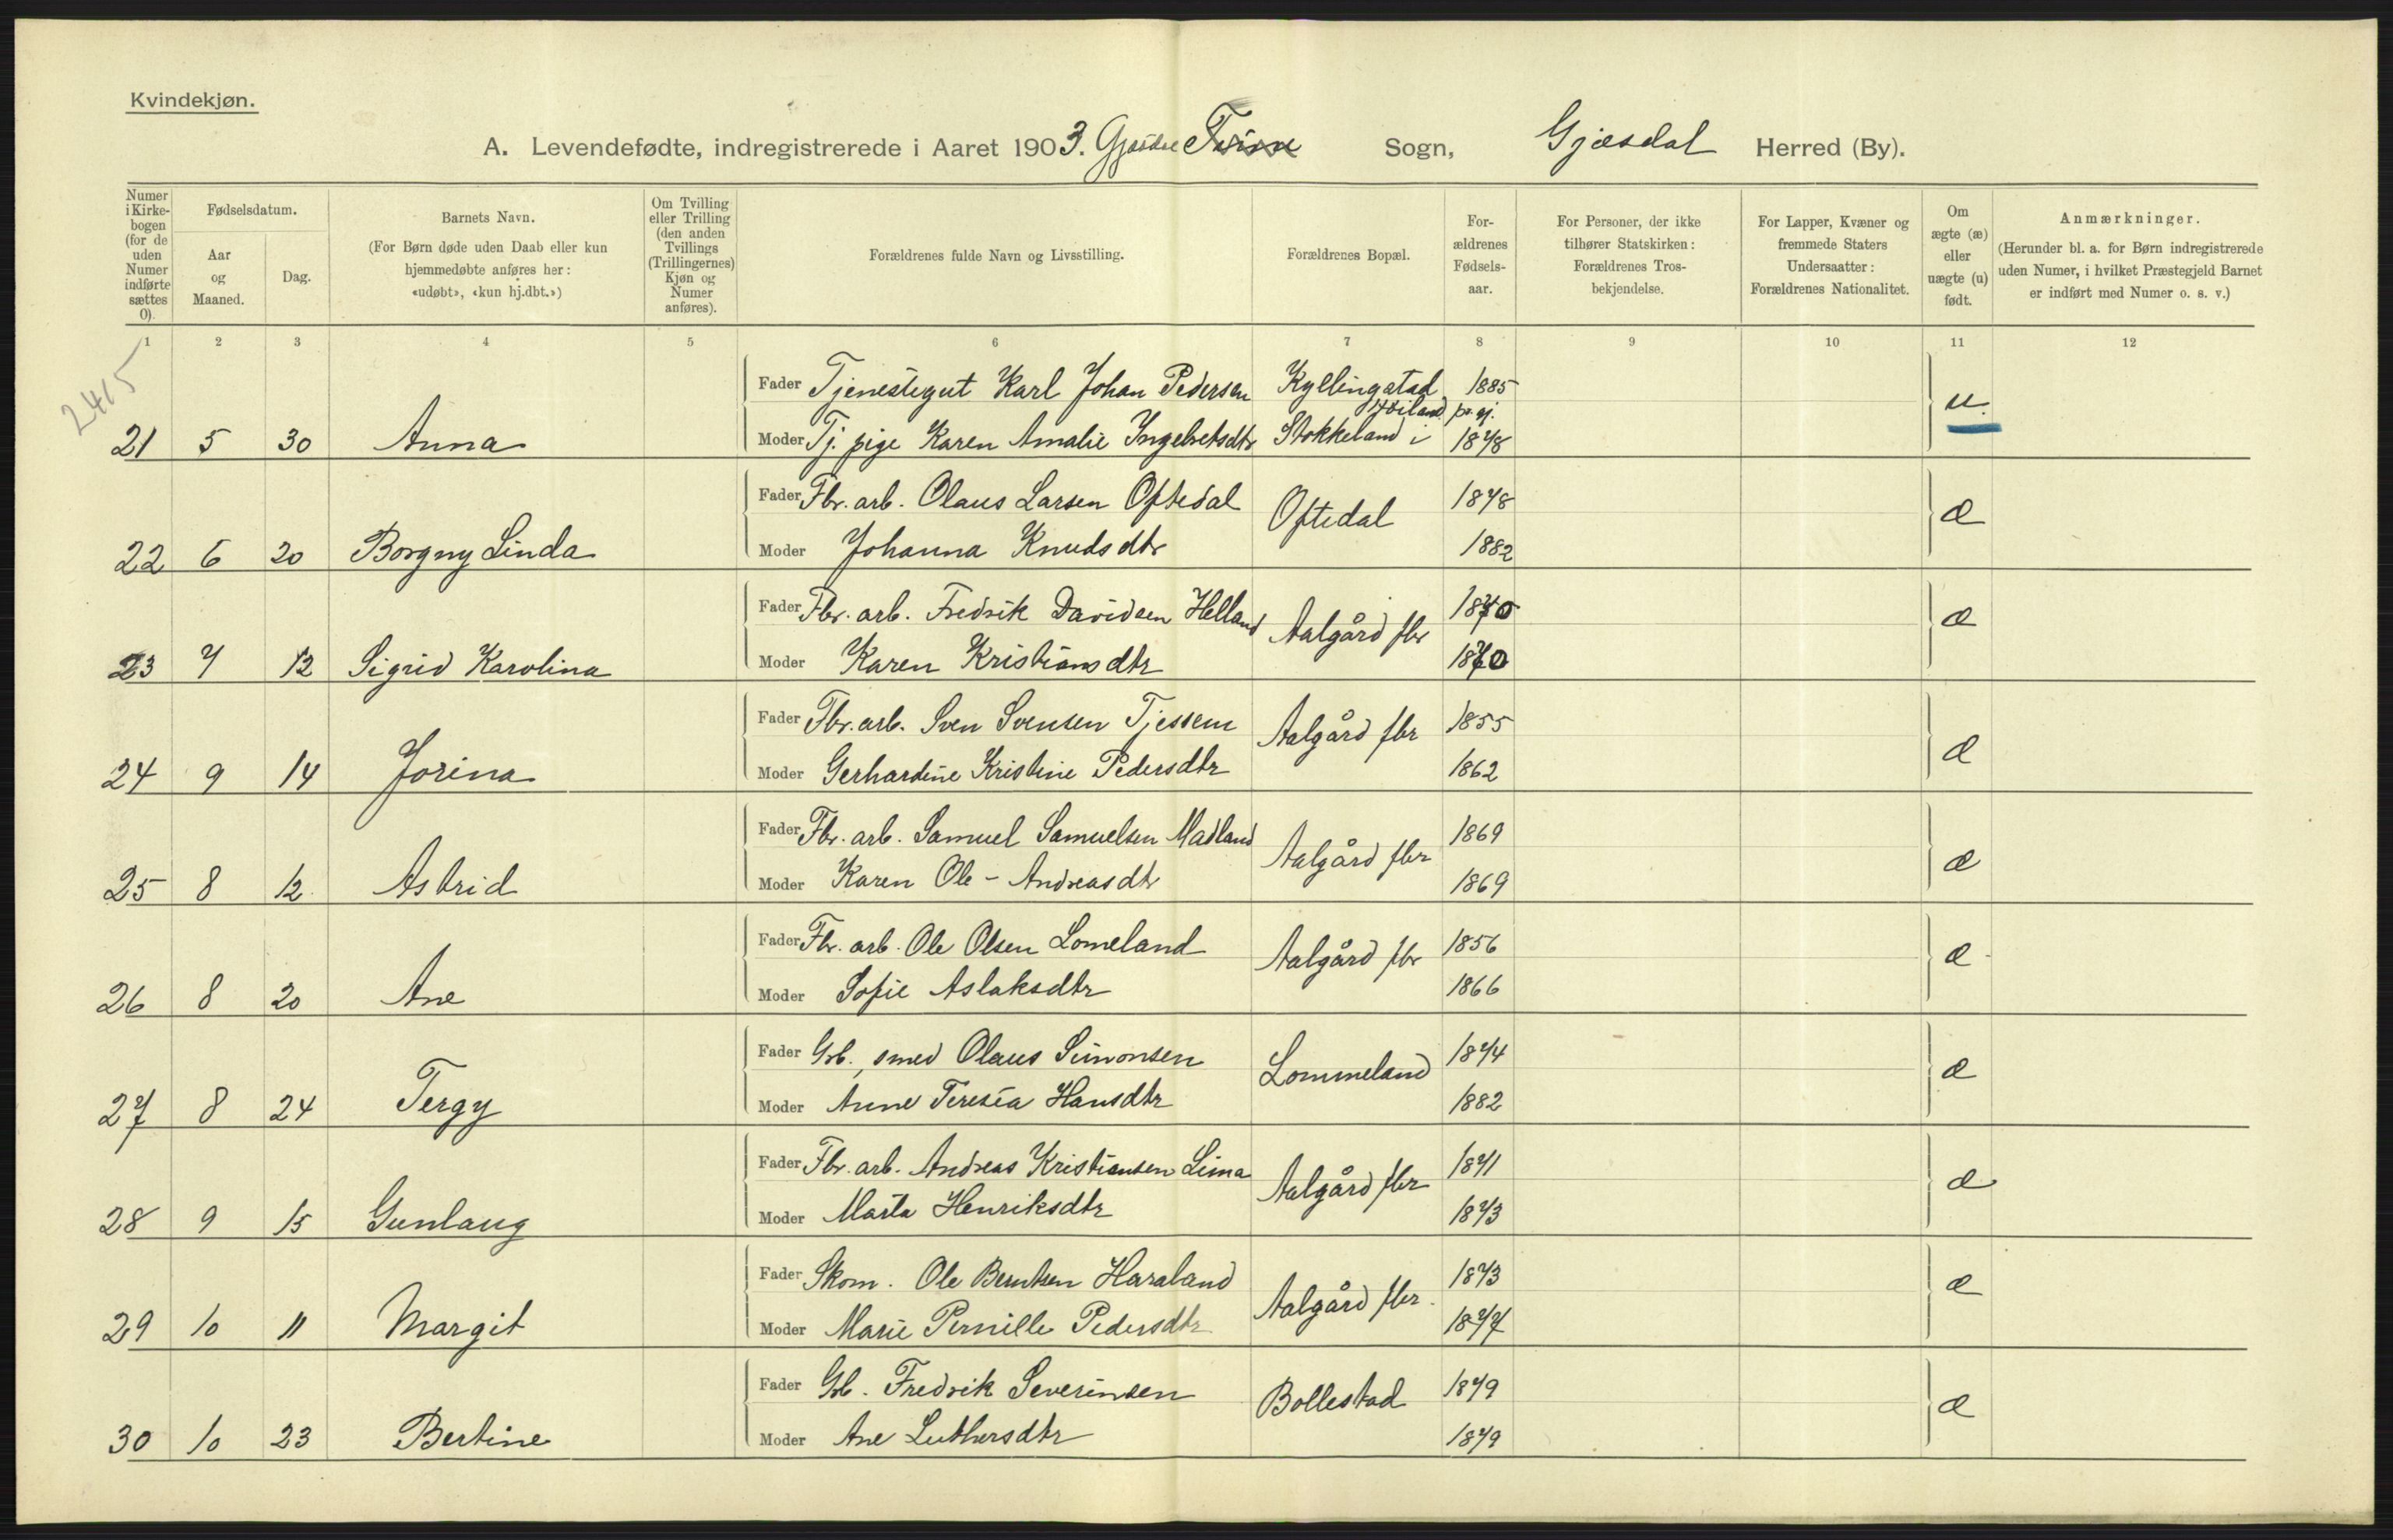 Kvindekjøn.
A. Levendefødte, indregistrerede i Aaret 1903. Sogn, Gjæsdal Herred (By).
Numer i Kirkebogen (for de uden Numer indførte sættes 0).
Fødselsdatum.
Aar og Maaned.
Dag.
Barnets Navn.
(For Børn døde uden Daab eller kun hjemmedøbte anføres her: «udøbt», «kun hj.dbt.»)
Om Tvilling eller Trilling (den anden Tvillings (Trillingernes) Kjøn og Numer anføres).
Forældrenes fulde Navn og Livsstilling.
Forældrenes Bopæl.
Forældrenes Fødselsaar.
For Personer, der ikke tilhører Statskirken: Forældrenes Trosbekjendelse.
For Lapper, Kvæner og fremmede Staters Undersaatter: Forældrenes Nationalitet.
Om ægte (æ) eller uægte (u) født.
Anmærkninger.
(Herunder bl. a. for Børn indregistrerede uden Numer, i hvilket Præstegjeld Barnet er indført med Numer o. s. v.)
1 2 3 4 5 6 7 8 9 10 11 12
2415
Fader Tjenestegut Karl Johan Pedersen Kyllingstad 1885
Høiland pr. gj.
21 5 30 Anna Moder Tj. pige Karen Amalie Ingebretsdtr Stokkeland i 1878 u.
Fader Fbr. arb. Olaus Larsen Oftedal Oftedal 1878 æ
22 6 20 Borgny Linda Moder Johanna Knudsdtr 1882
Fader Fbr. arb. Fredrik Davidsen Helland Aalgård fbr 1870 æ
23 7 12 Sigrid Karolina Moder Karen Kristiansdtr 1870
Fader Fbr. arb. Sven Svensen Tjessem Aalgård fbr 1855 æ
24 9 14 Jorina Moder Gerhardine Kristine Pedersdtr 1862
Fader Fbr. arb. Samuel Samuelsen Madland Aalgård fbr 1869 æ
25 8 12. Astrid Moder Karen Ole - Andreasdtr 1869
Fader Fbr. arb. Ole Olsen Lomeland Aalgård fbr 1856 æ
26 8 20 Ane Moder Sofie Aslaksdtr 1866
Fader Grb., smed Olaus Simonsen Lommeland 1874 æ
27 8 24 Tergy Moder Anne Teresia Hansdtr 1882
Fader Fbr. arb. Andreas Kristiansen Lima Aalgård fbr 1871 æ
28 9 15 Gunlaug Moder Marta Henriksdtr 1873
Fader Skom. Ole Berntsen Haraland Aalgård fbr. 1873 æ
29 10 11 Margit Moder Marie Pernille Pedersdtr 1877
Fader Grb. Fredrik Severinsen Bollestad 1879 æ
30 10 23 Bertine Moder Ane Luthersdtr 1879